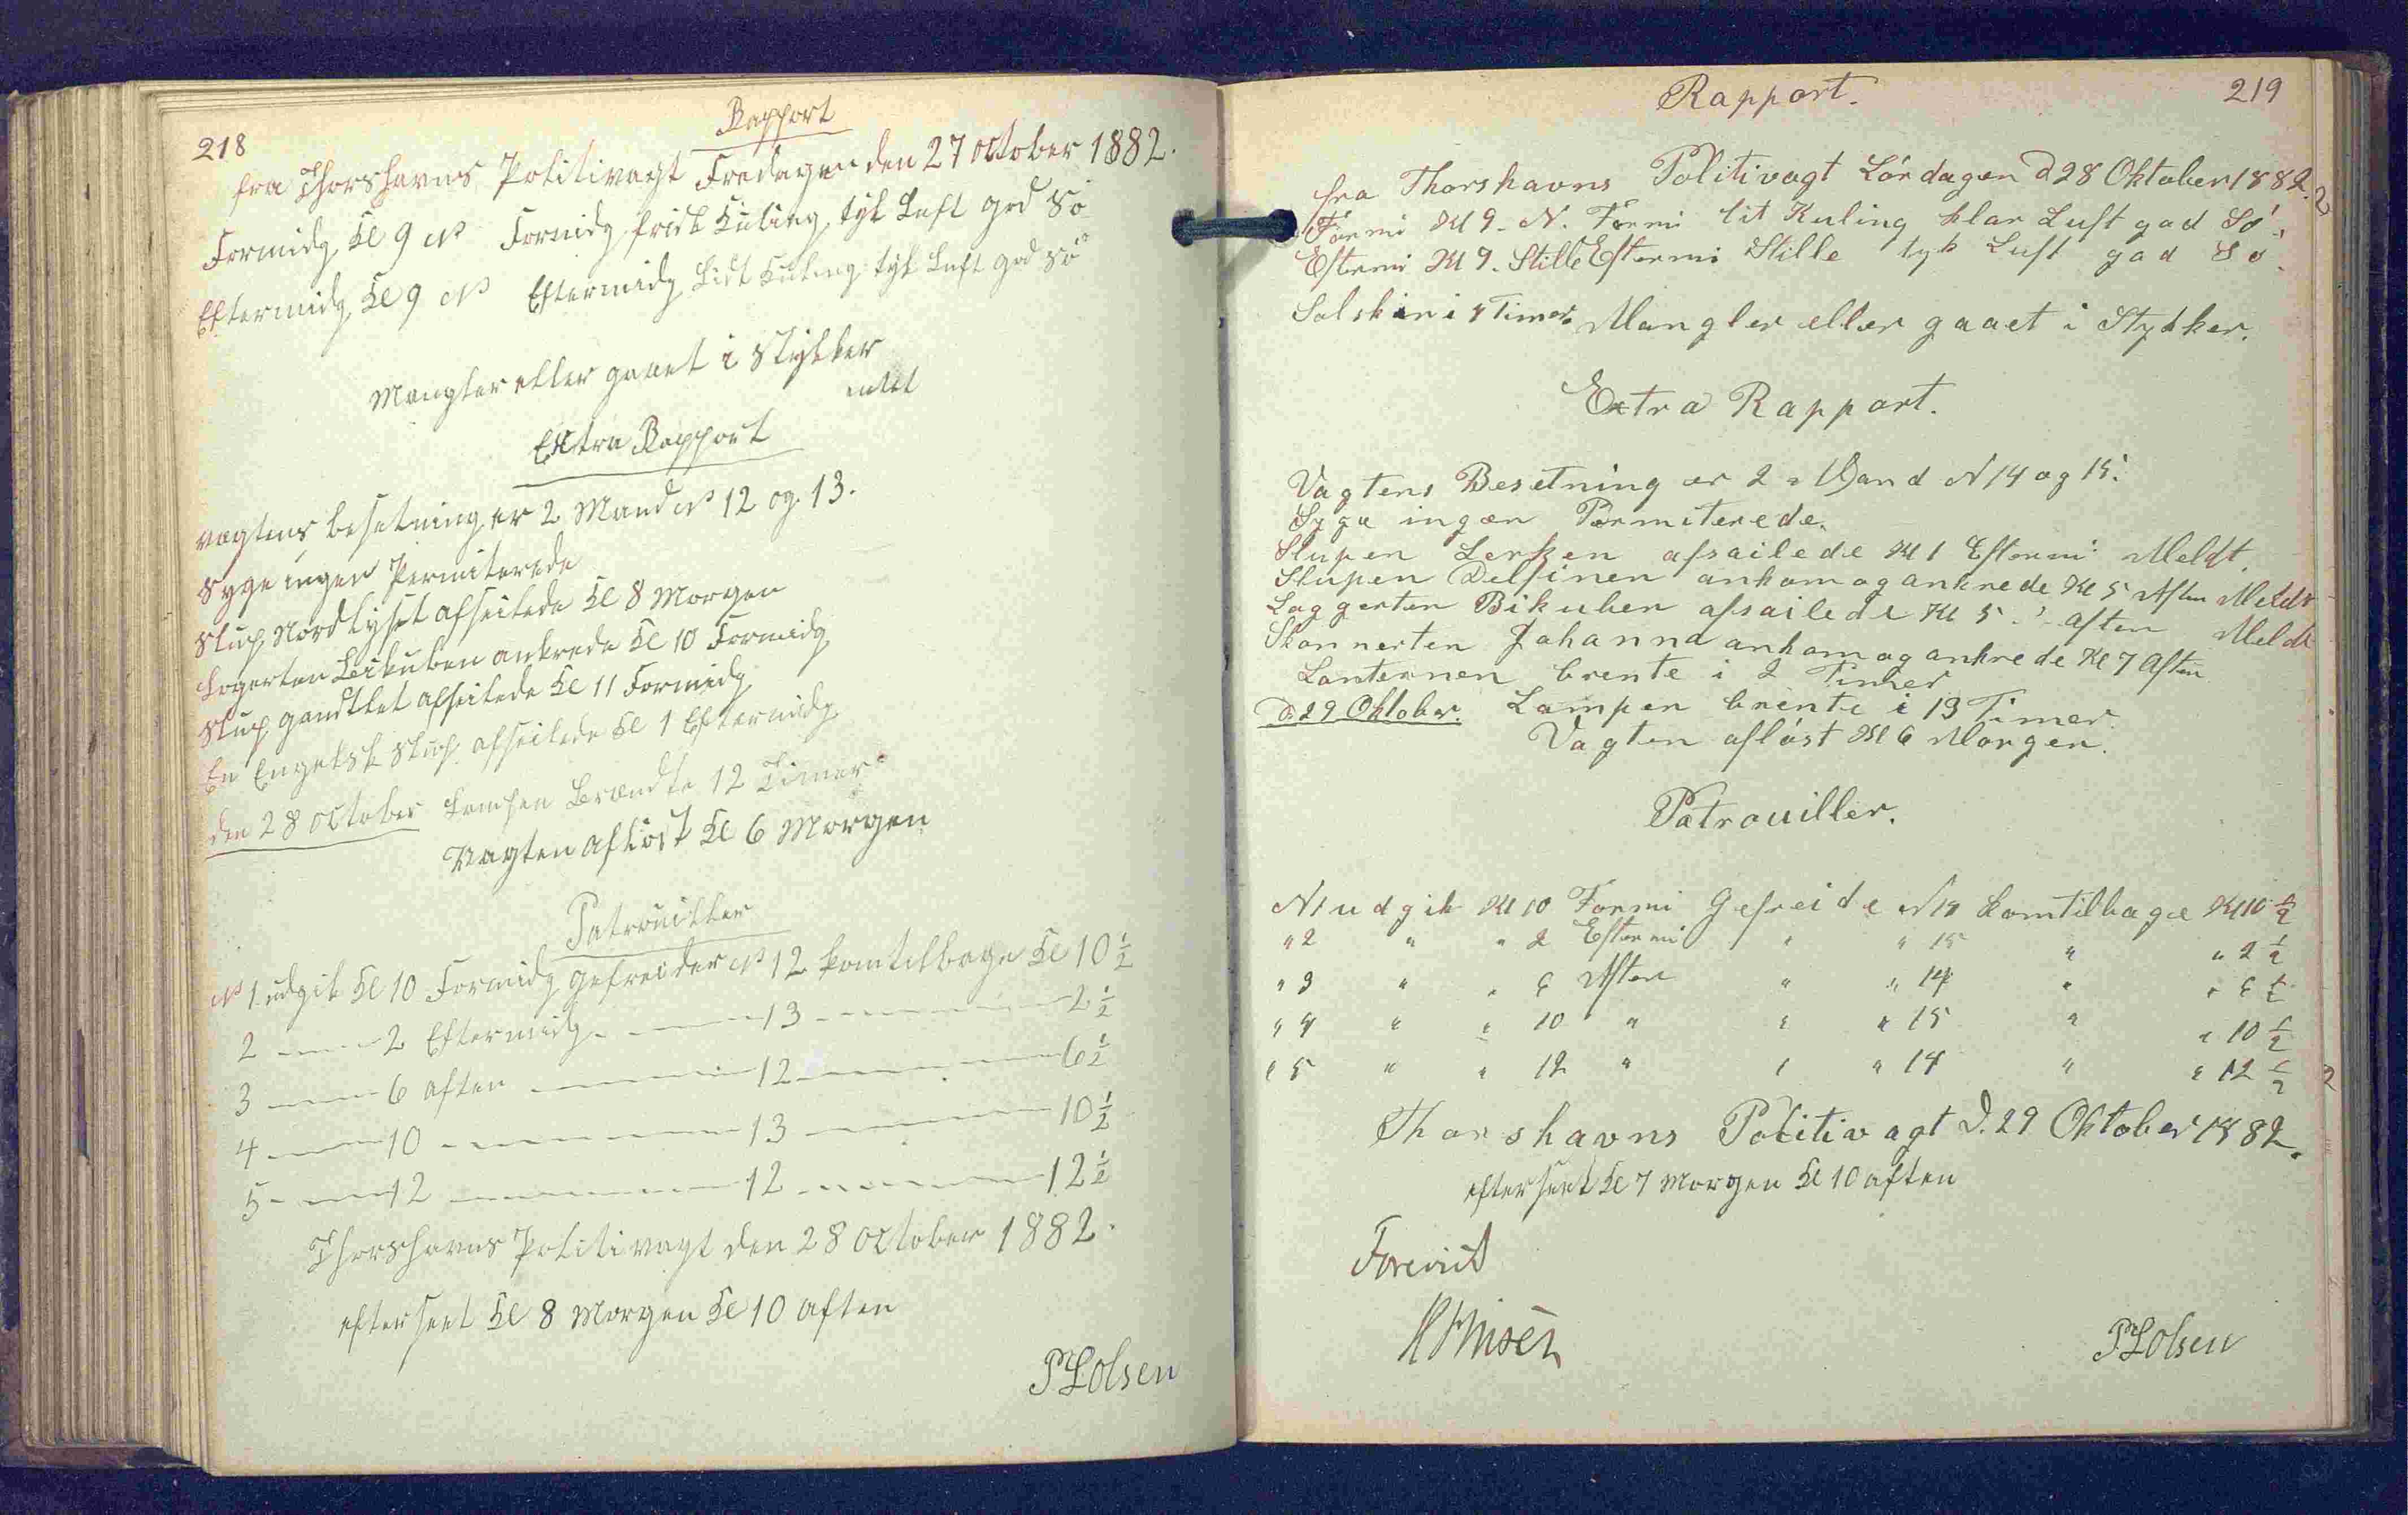 218
Rapport
fra Thorshavns Politivagt Fredagen den 27 October 1882.
Formidg Kl 9 N Formidg frisk Kuling, tyk Luft god Sö
Eftermidg Kl 9 N Eftermidg Lidt Kuling tyk Luft god Sö
Mangler eller gaaet i Stykker
intet
Extra Rapport
Vagtens besetning er 2 Mand N 12 og 13.
Syge ingen Permiterede
Slup Nordlyset afseilede Kl 8 Morgen
Logerten Bikuben ankrede Kl 10 Formidg
Slup afseilede Kl 11 Formidg
En Engelsk Slup afseilede Kl 1 Eftermidg
den 28 October Lampen Brændte 12 Timer
Vagten aflöst Kl 6 Morgen
Patrouiller
N 1 udgik Kl 10 Formidg gefreider N 12 komtilbage Kl 10 1/2
2 — 2 Eftermidg — 13 — 2 1/2
3 — 6 aften — 12 — 6 1/2
4 — 10 — 13 — 10 1/2
5 — 12 — 12 — 12 1/2
Thorshavns Politivagt den 28 October 1882.
efterseet Kl 8 Morgen Kl 10 aften
P Olsen
Rapport.
219
fra Thorshavns Politivagt Lördagen d 28 Oktober 1882.
Formi Kl 9. N. Formi lit Kuling klar Luft god Sö.
Eftermi Kl 9. Stille Eftermi Stille tyk Luft god Sö.
Solskin i 4 Timer. Mangler eller gaaet i Stykker.
Extra Rapport.
Vagtens Besetning er 2 Mand N 14 og 15.
Syge ingen Permiterede.
Slupen Lerken afsailede Kl 1 Eftermi Meldt.
Slupen Delfinen ankom og ankrede Kl 5 Aften Meldt
Loggerten Bikuben afsailede Kl 5 Aften Meldt
Skonnerten Johanna ankom og ankrede Kl 7 Aften
Lanternen brente i 2 Timer
D. 29 Oktober. Lampen brente i 13 Timer
Vagten aflöst Kl 6 Morgen.
Patrouiller.
N 1 udgik Kl 10 Formi Gefreide N 14 komtilbage Kl 10 1/2
" 2 " " 2 Eftermi " " 15 " " 2 1/2
" 3 " " 6 Aften " " 14 " " 6 1/2
" 4 " " 10 " " " 15 " " 10 1/2
" 5 " " 12 " " " 14 " " 12 1/2
Thorshavns Politivagt d. 29 Oktober 1882.
efterseet Kl 7 Morgen Kl 10 aften
Forevist
P Olsen